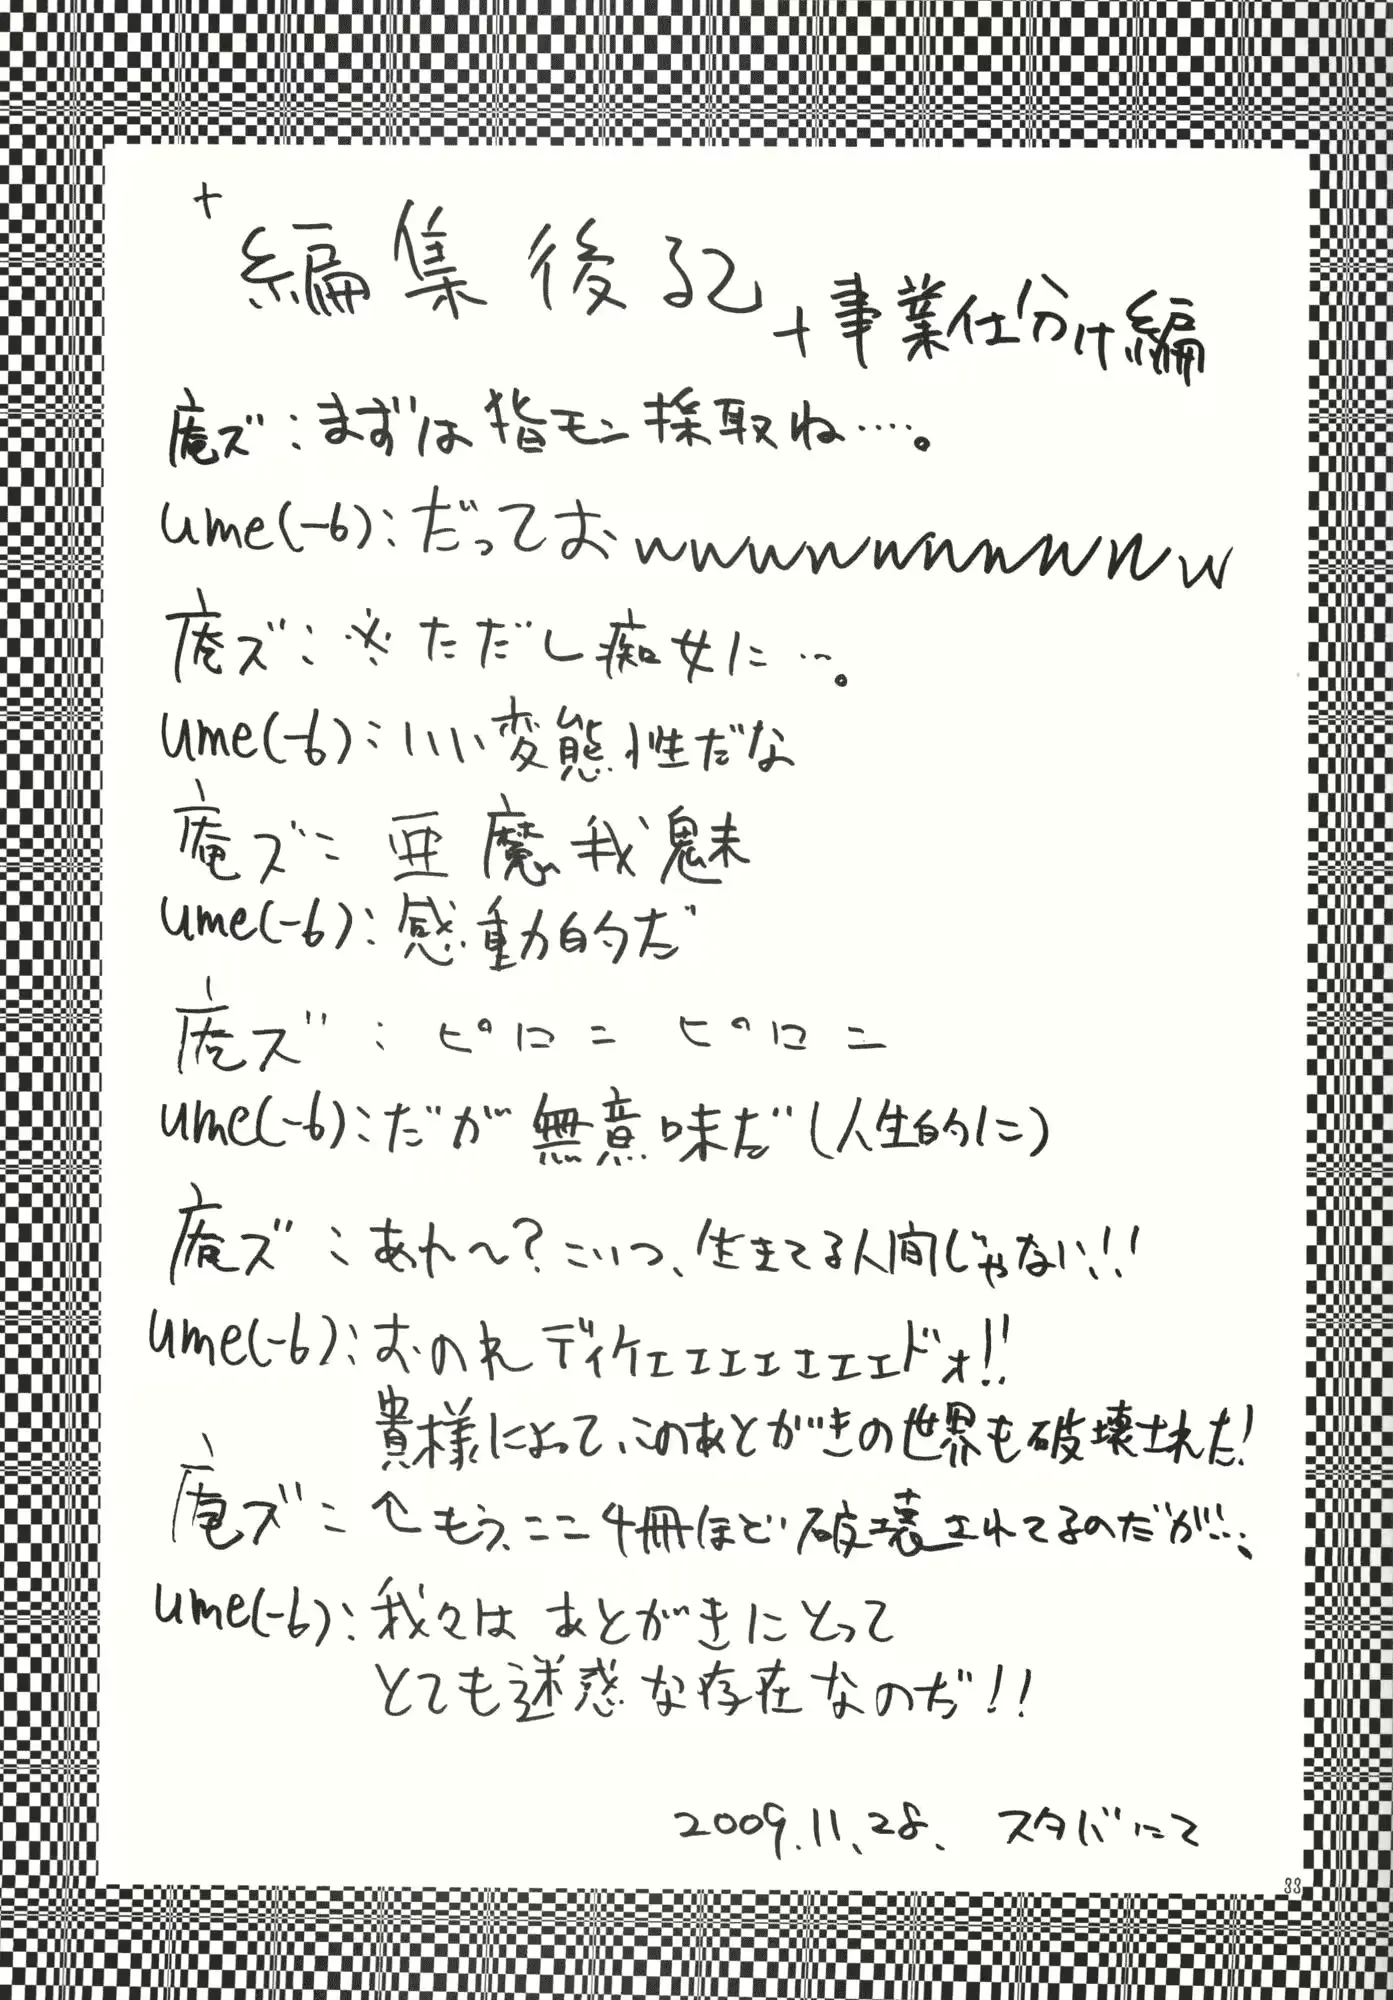 +編集後記+事業仕分け編
庵ズ:まずは指モン採取ね‥‥。
ume(-6):だっておwwwwwwwwwww
庵ズ:※ただし痴女に…。
ume(-6):いい変態性だな
庵ズ:亜魔我魅
ume(-6):感動的だ
庵ズ:ピロニ ピロニ
ume(-6):だが無意味だ(人生的に)
庵ズ:あれ〜?こいつ、生きてる人間じゃない!!
ume(-6):おのれディケェェェェェェェドォ!!
貴様によって、このあとがきの世界も破壊された!
庵ズ:↑もう、ここ4冊ほど破壊されてるのだが…、
ume(-6):我々はあとがきにとって
とても迷惑な存在なのぢ!!
2009.11.28. スタバにて
33